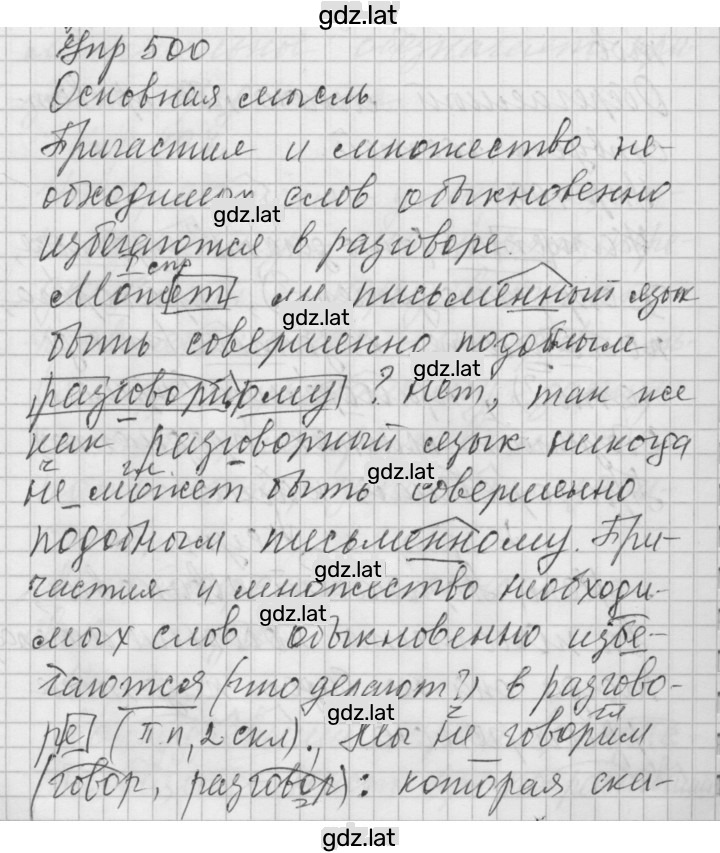 gdz.lat
Упр 500
Основная мысль.
Причастия и множество не-
обходимых слов обыкновенно
gdz.lat
избегаются в разговоре.
I спр
Может ли письменный язык
gdz.lat
быть совершенно подобным
gdz.lat
разговорному? Нет, так же
как разговорный язык никогда
ч гл
gdz.lat
не может быть совершенно
подобным письменному. При-
gdz.lat
частия и множество необходи-
gdz.lat
мых слов обыкновенно избе-
гаются (что делают?) в разгово-
gdz.lat
ч гл
ре (П п, 2 скл)., мы не говорим
(говор, разговор): которая ска-
gdz.lat